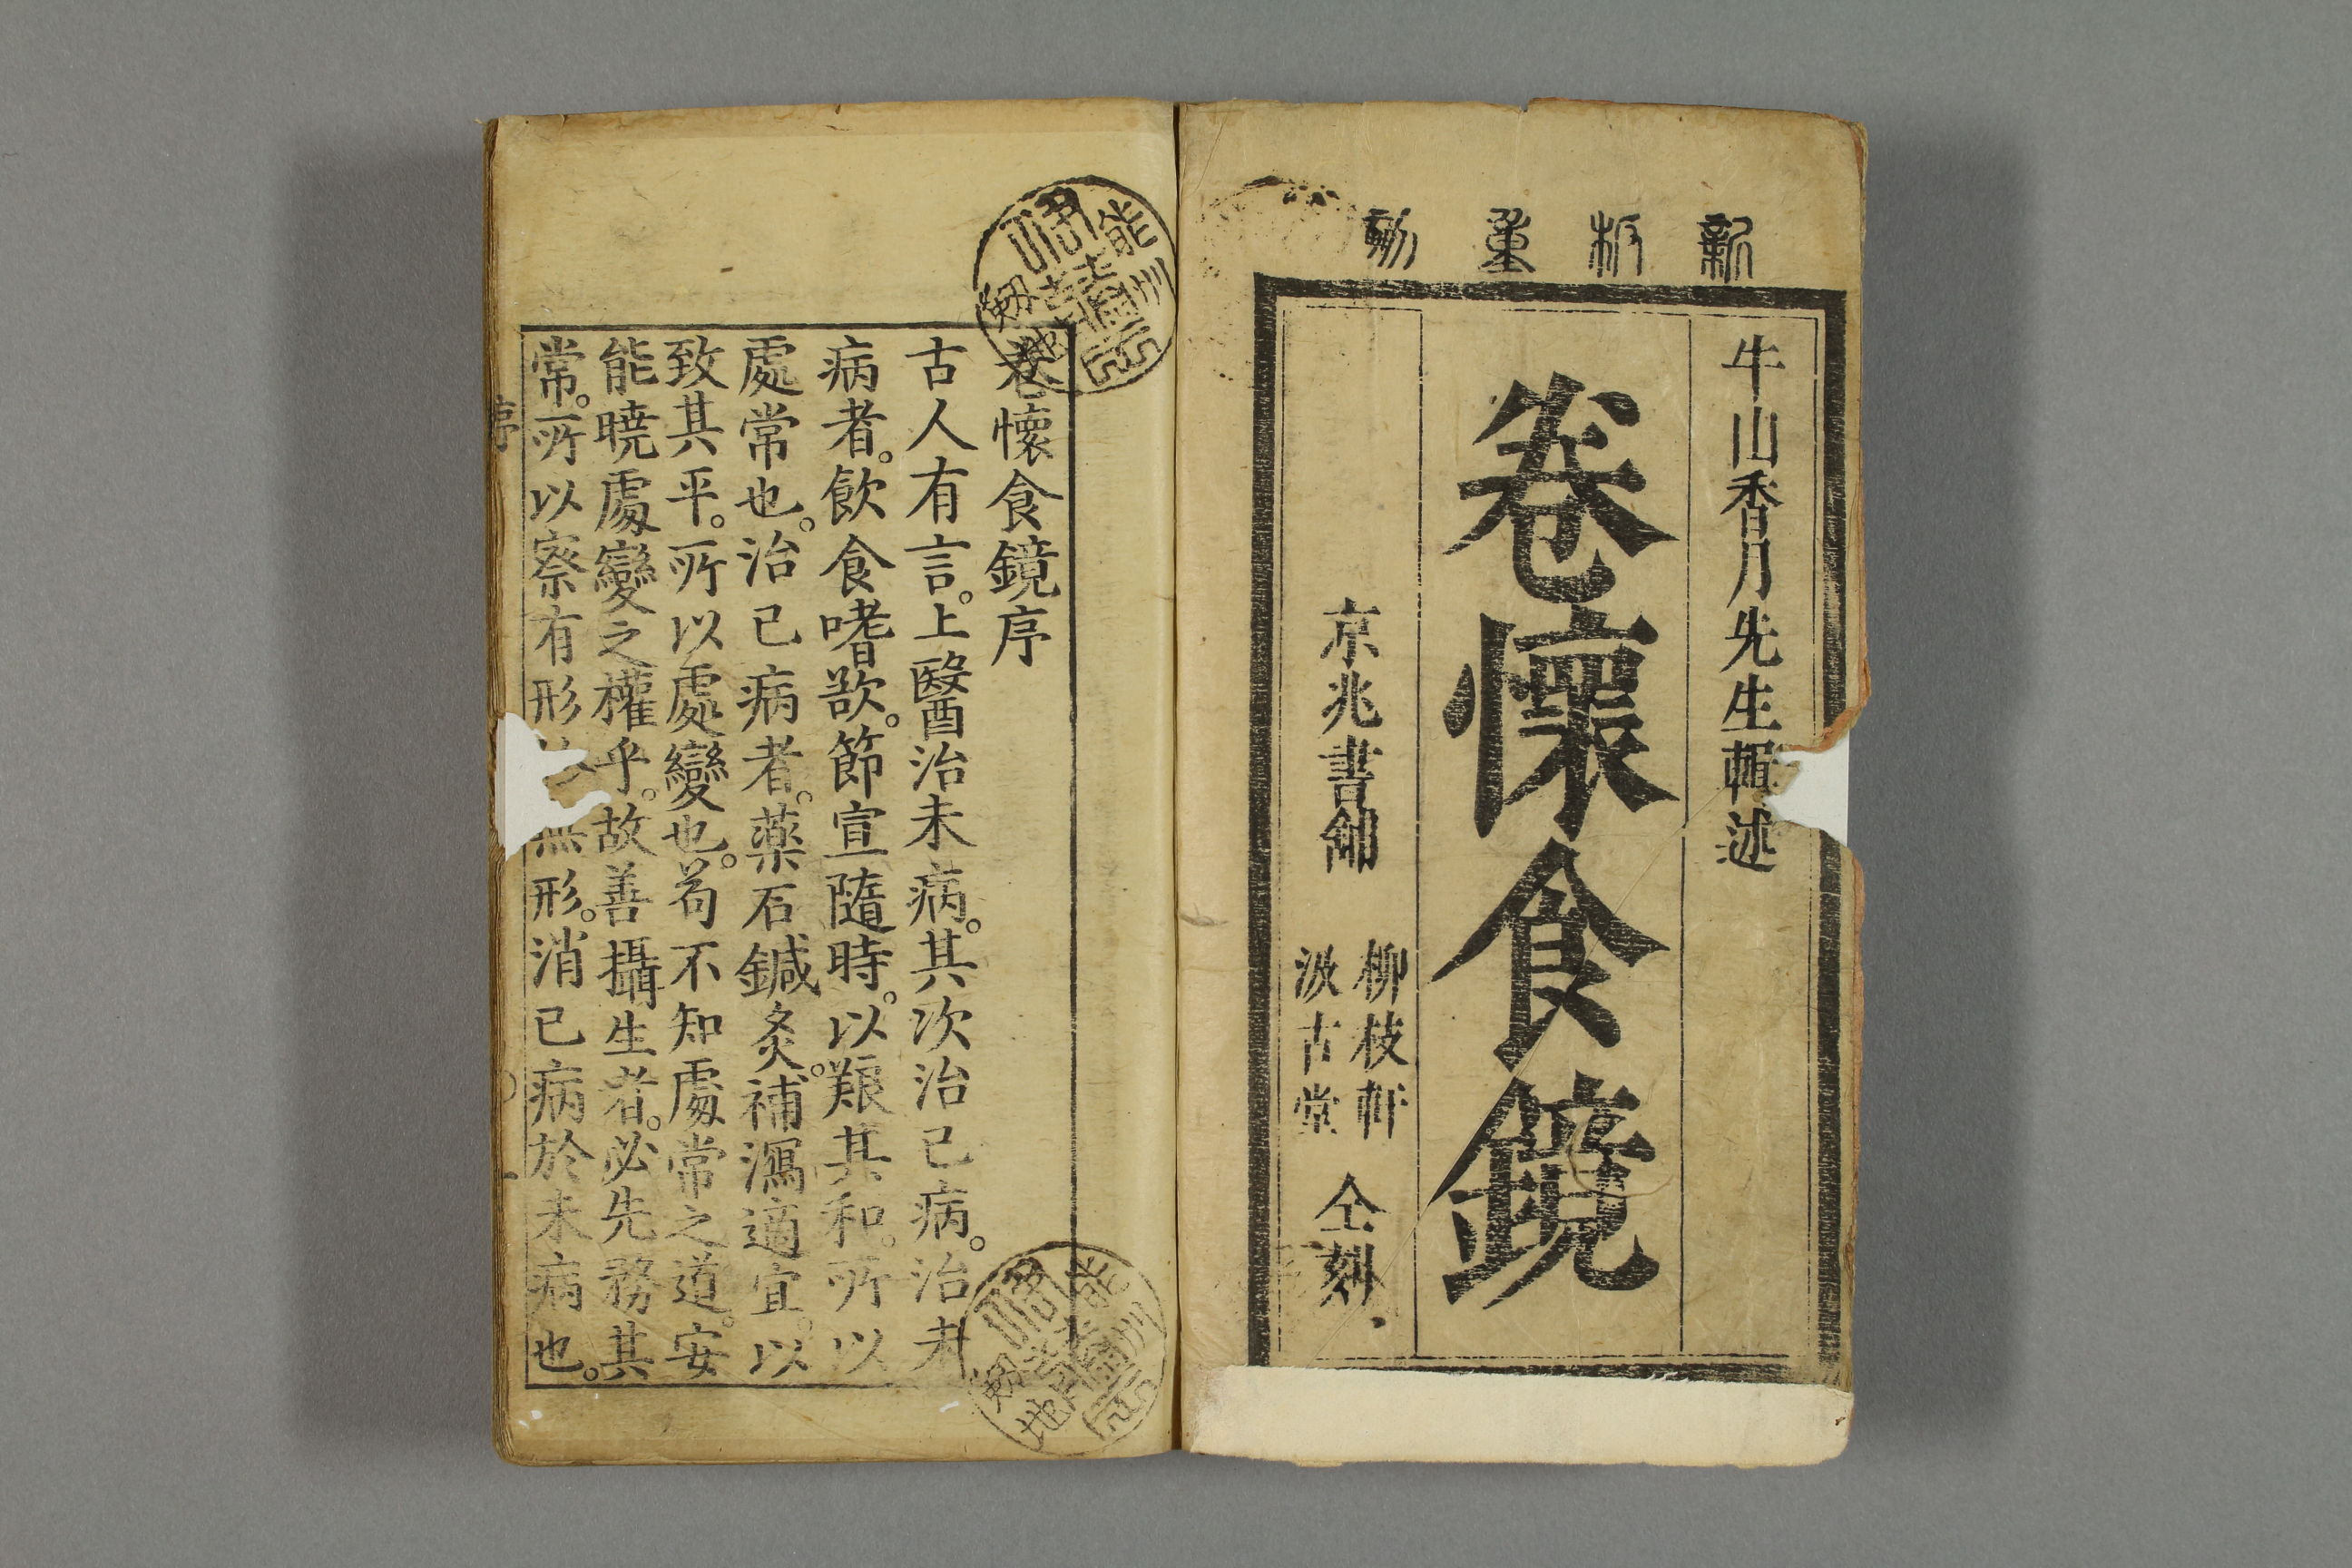 新板重刻
牛山香月先生輯述
卷懷食鏡
京兆書舗
柳枝軒
汲古堂
仝刻
卷懷食鏡序
古人有言。上醫治未病。其次治已病。治未
病者。飲食嗜欲。節宣隨時。以艱其和。所以
處常也。治已病者。薬石鍼灸。補瀉適宜。以
致其平。所以處變也。苟不知處常之道。安
能曉處變之權乎。故善攝生者。必先務其
常。所以察有形 無形。消已病於未病也。
序
能州